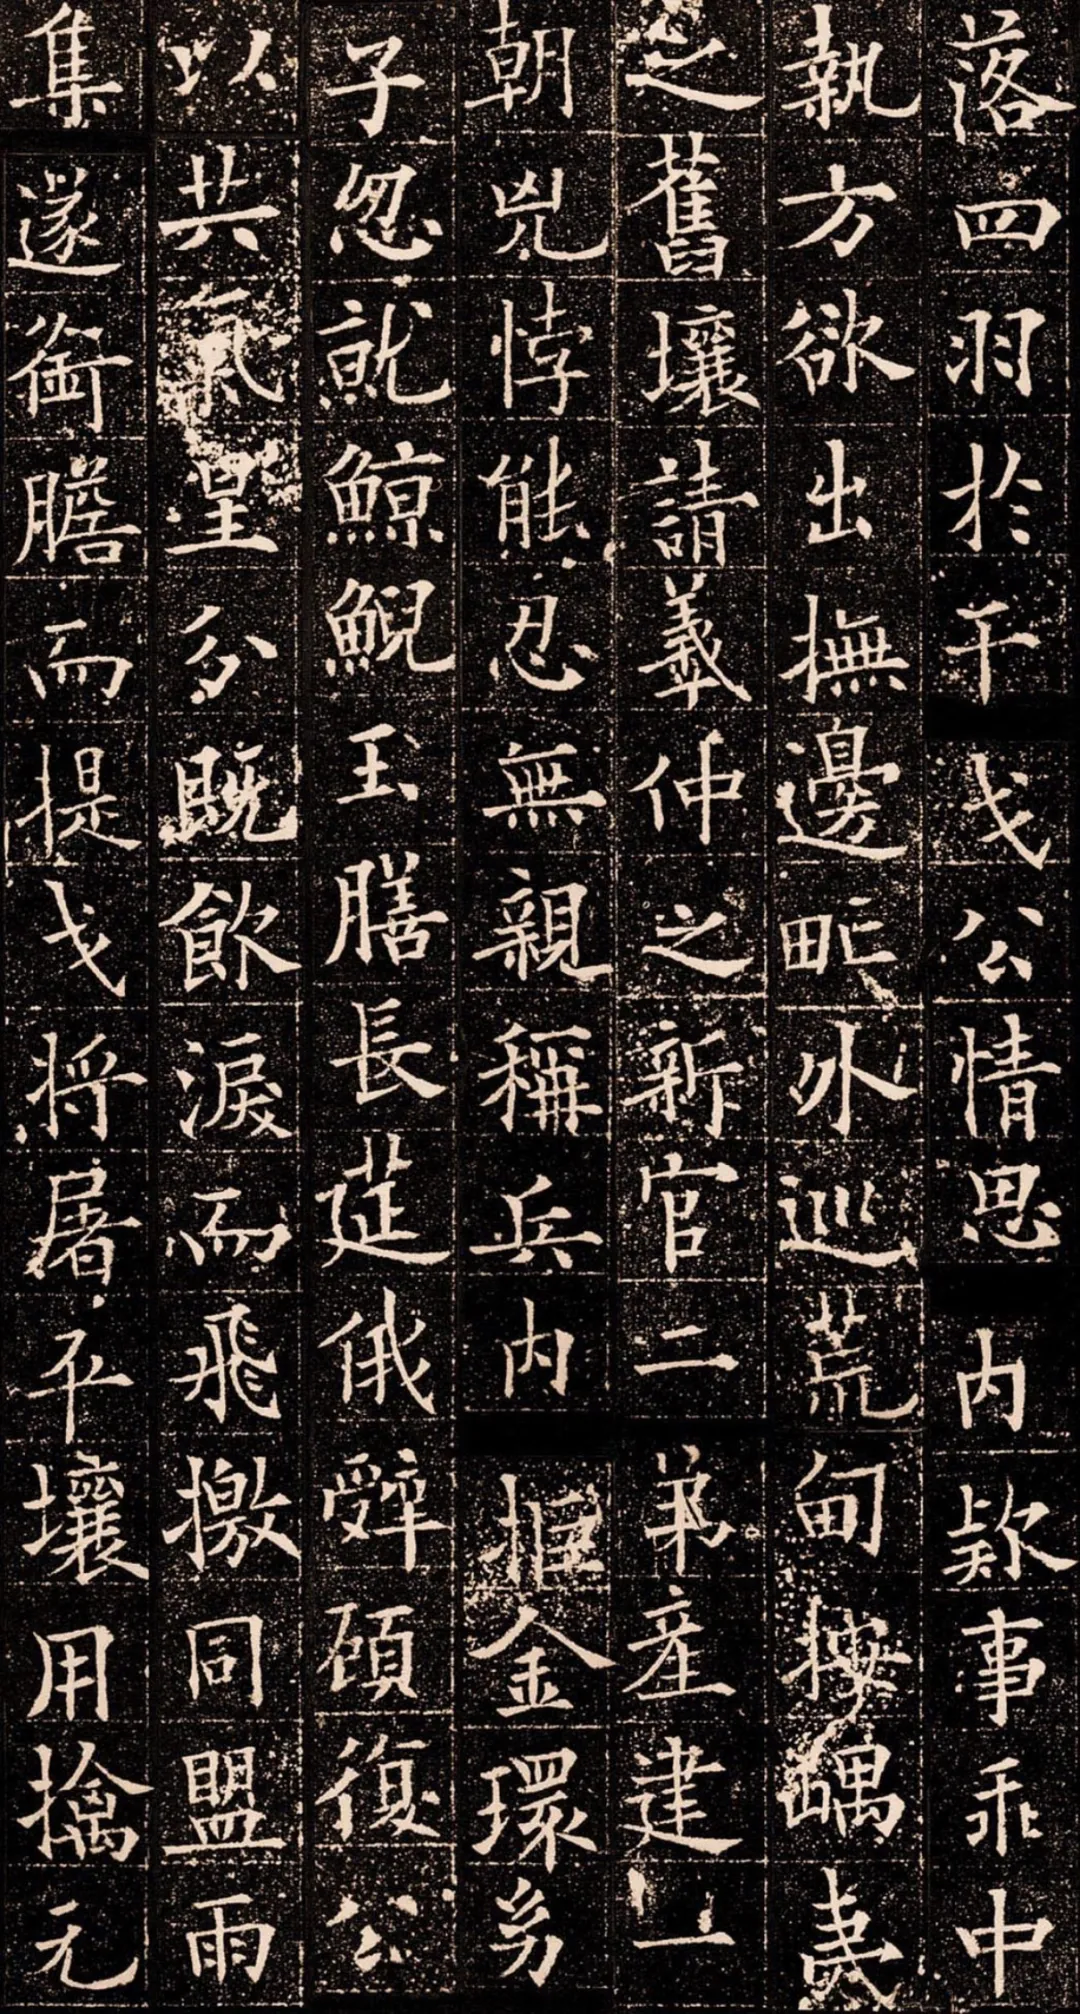 落四羽於干戈公情思内欵事乖中
執方欲出撫邊甿外巡荒甸按嵎夷
之舊壤請羲仲之新官二弟產建一
朝兇悖能忍無親稱兵内拒金環幼
子忽就鯨鯢玉膳長莚俄辤顧復公
以共氣星分既飲淚而飛檄同盟雨
集遂銜膽而提戈将屠平壤用擒元